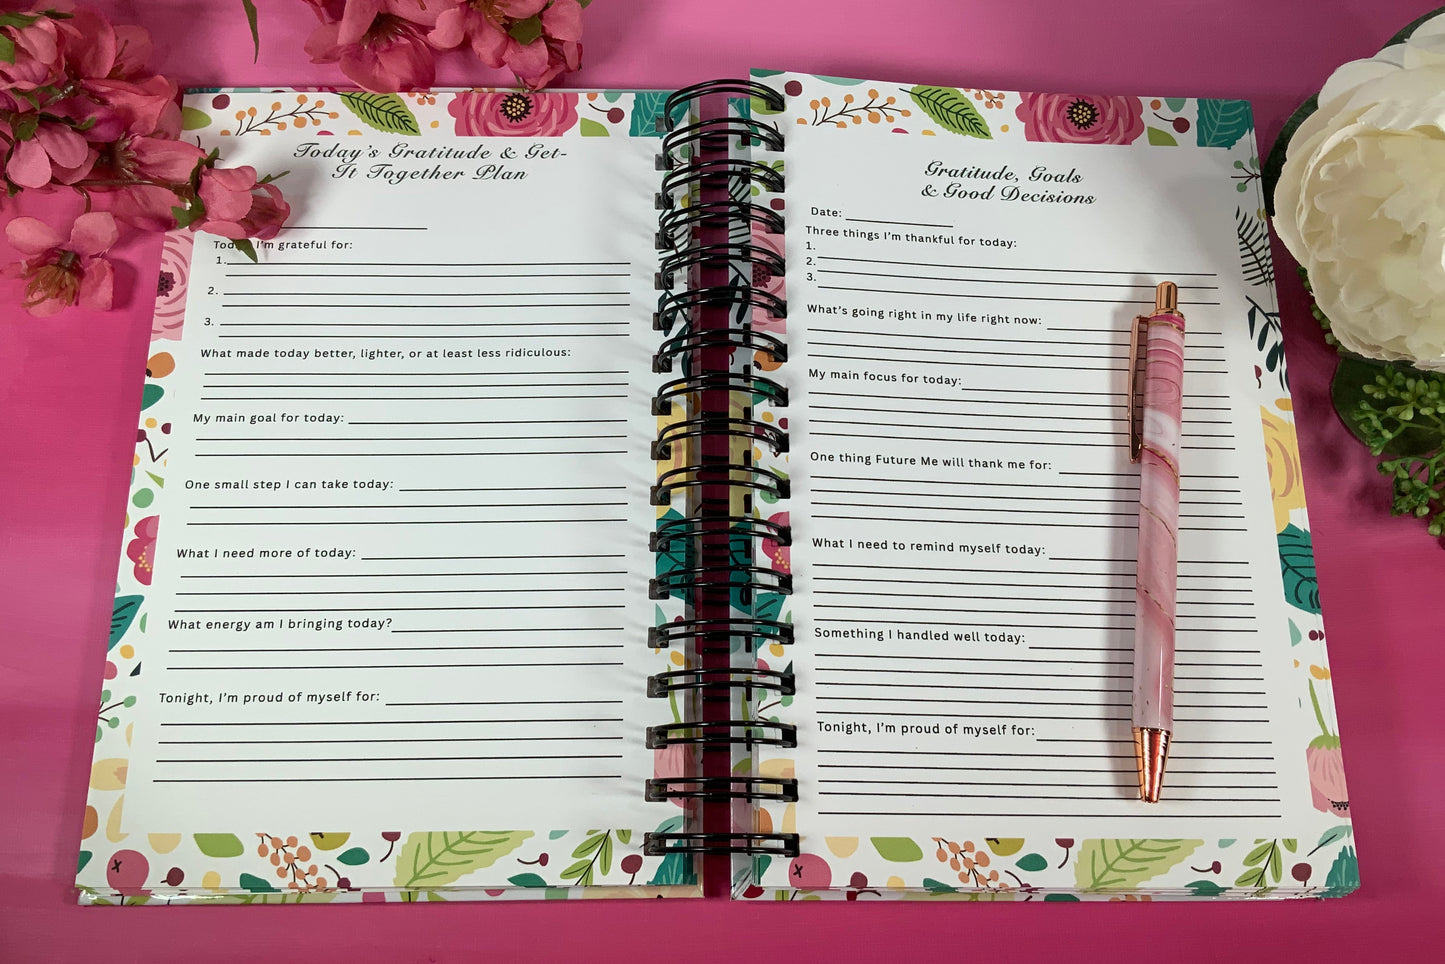 Today's Gratitude & Get-
It Together Plan
Today I'm grateful for:
1.
2.
3.
What made today better, lighter, or at least less ridiculous:
My main goal for today:
One small step I can take today:
What I need more of today:
What energy am I bringing today?
Tonight, I'm proud of myself for:
Gratitude, Goals
& Good Decisions
Date:
Three things I'm thankful for today:
1.
2.
3.
What's going right in my life right now:
My main focus for today:
One thing Future Me will thank me for:
What I need to remind myself today:
Something I handled well today:
Tonight, I'm proud of myself for: